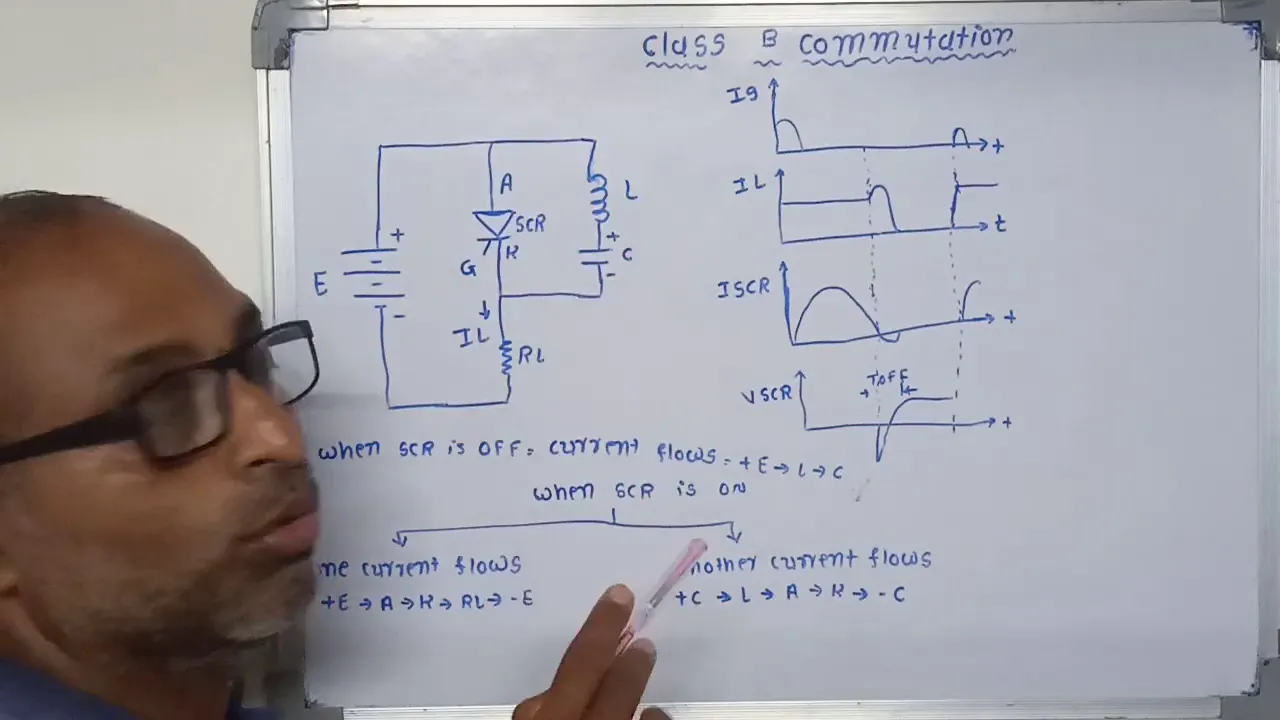 Class B Commutation
Ig
t
IL
t
ISCR
t
VSCR
TOFF
t
A
SCR
G
K
L
+
C
-
+
E
-
IL
RL
when SCR is OFF = current flows = +E → L → C
when SCR is ON
current flows
+E → A → K → RL → -E
current flows
+C → L → A → K → -C